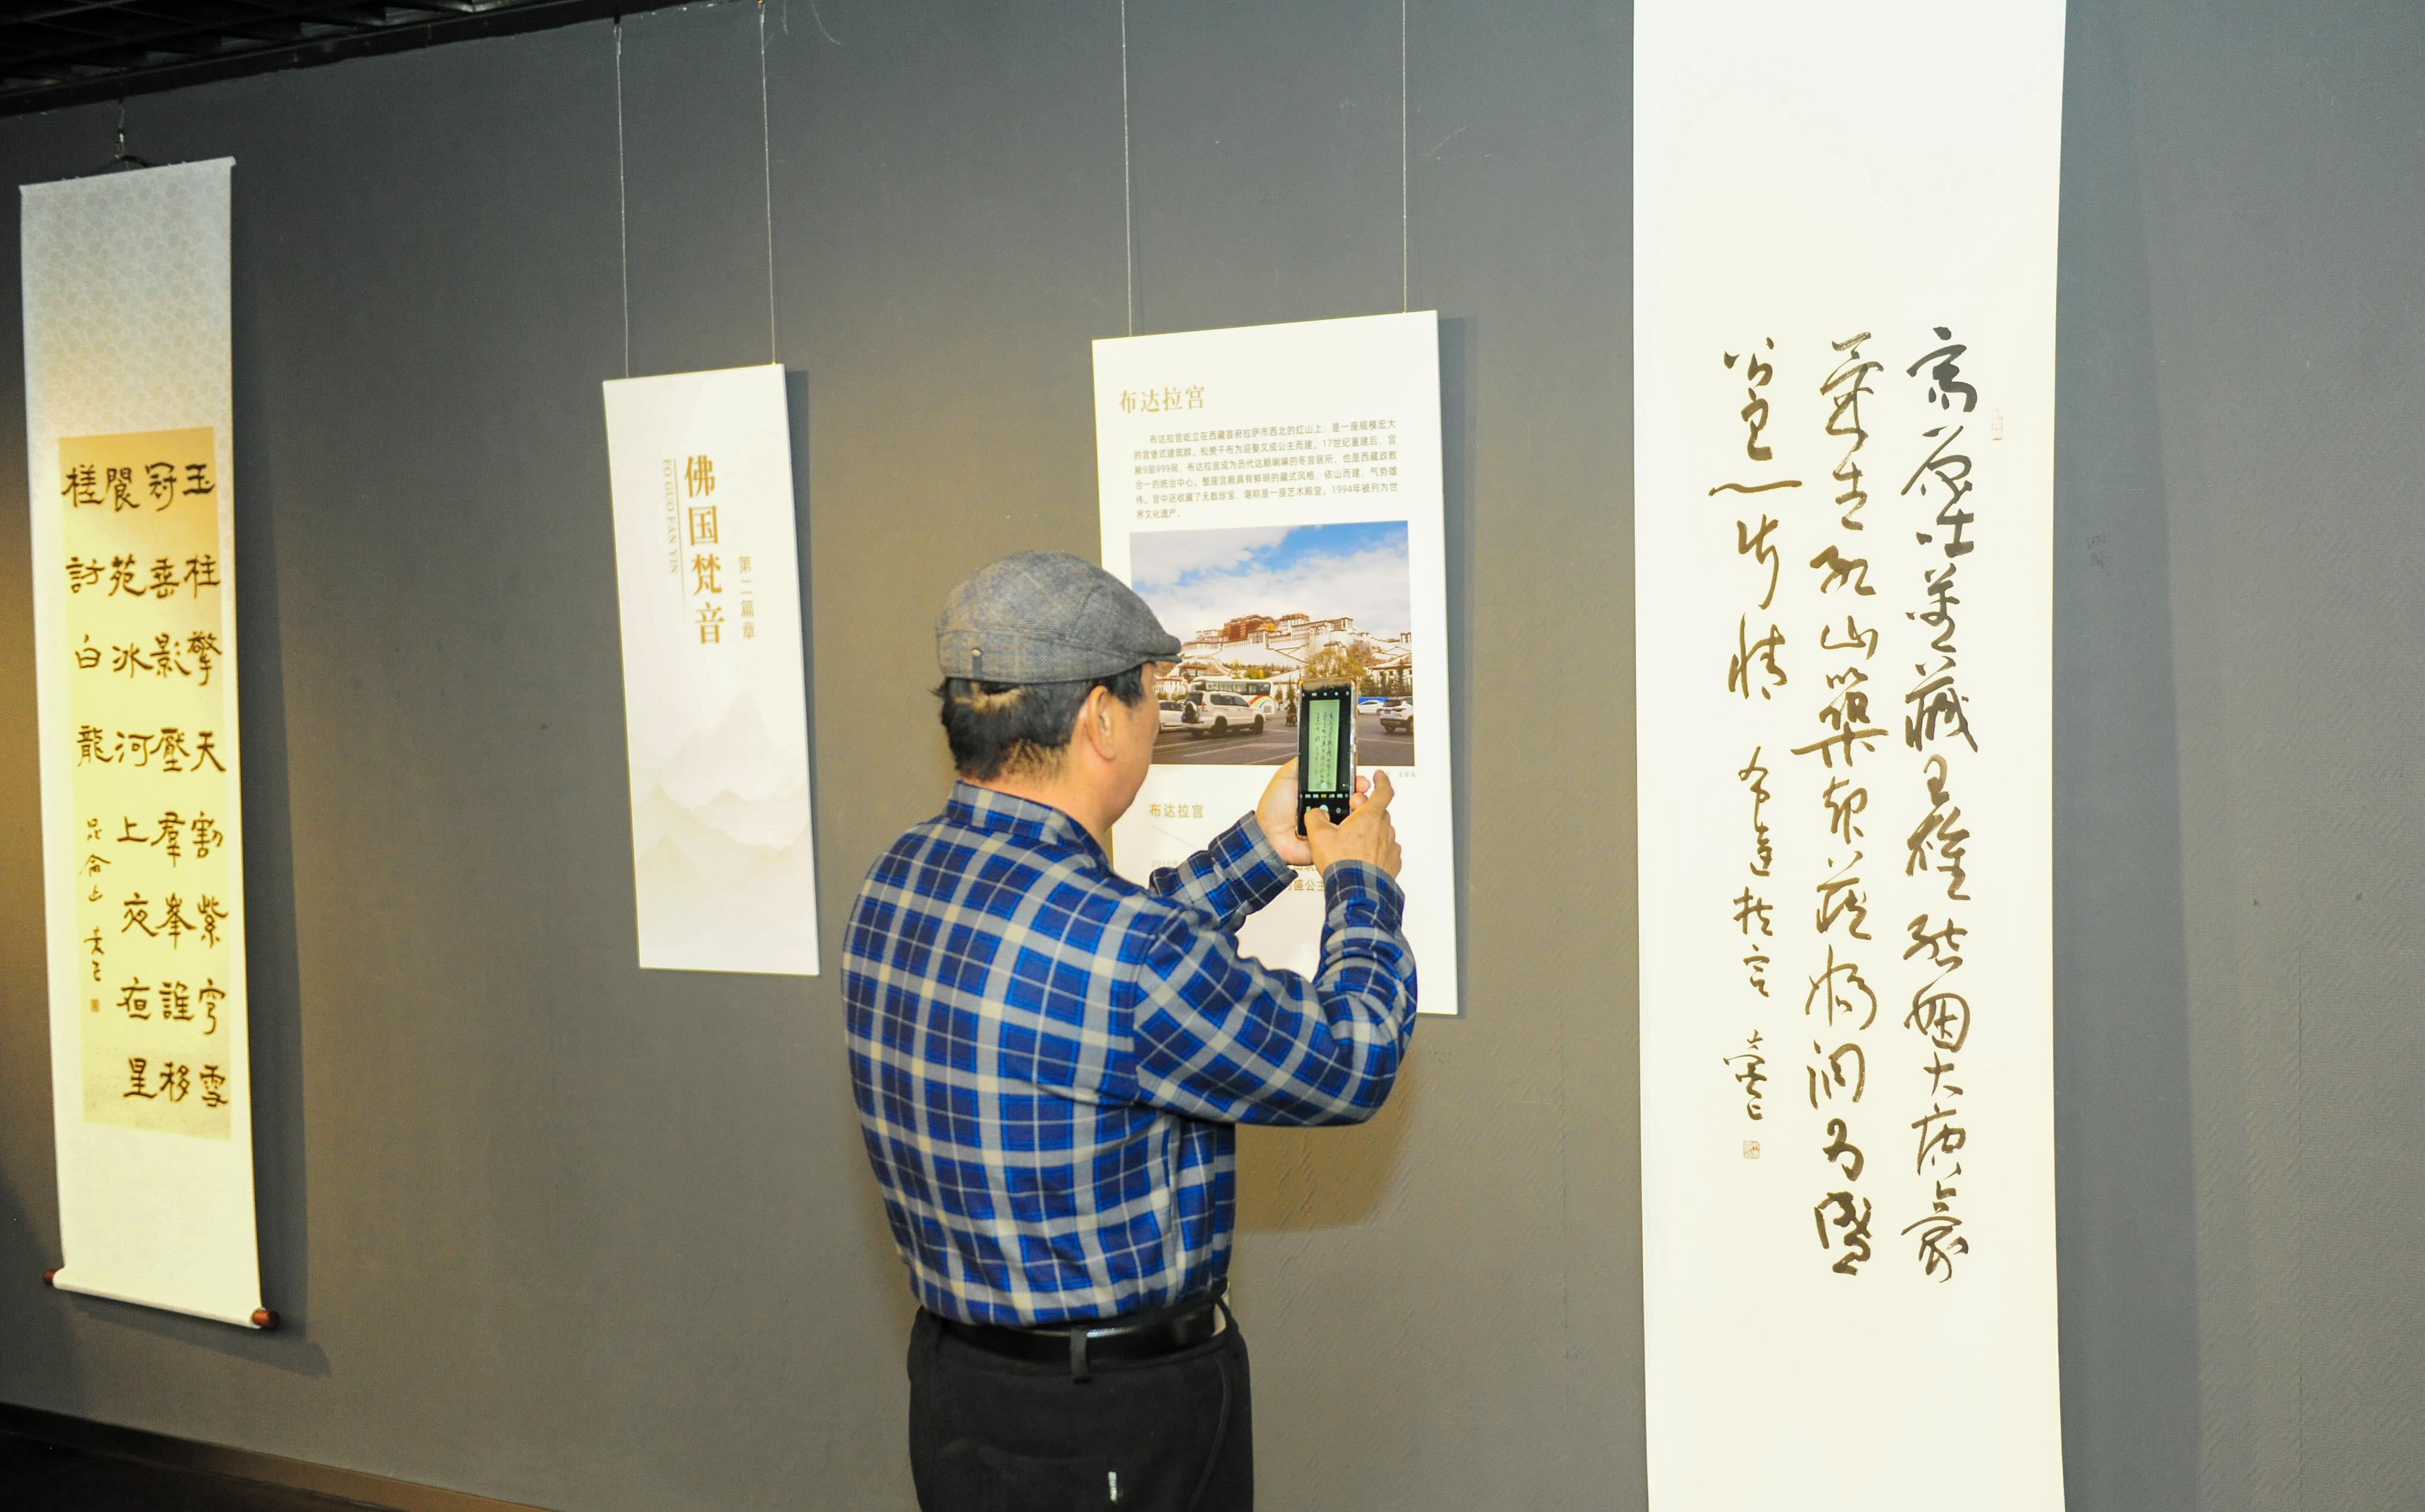 玉柱擎天割紫穹雪
冠垂影壓羣峯誰移
閬苑冰河上夜亱星
槎訪白龍
昆侖山
第二篇章
佛国梵音
FO GUO FAN YIN
布达拉宫
布达拉宫屹立在西藏首府拉萨市西北的红山上,是一座规模宏大
的宫堡式建筑群。松赞干布为迎娶文成公主而建。17世纪重建后,宫
殿9层999间,布达拉宫成为历代达赖喇嘛的冬宫居所,也是西藏政教
合一的统治中心。整座宫殿具有鲜明的藏式风格,依山而建,气势雄
伟。宫中还收藏了无数珍宝,堪称是一座艺术殿堂。1994年被列为世
界文化遗产。
布达拉宫
盛公主
高原吐蕃藏王雄姻大唐豪
山築为盛
公主一片情 布達拉宫